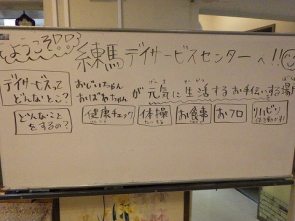 ようこそ!!
練馬デイサービスセンターへ!!
デイサービスって
どんなとこ?
おじいちゃん
おばあちゃん
が元気に生活するお手伝いする場所
どんなこと
をするの?
健康チェック
体操
お食事
おフロ
リハビリ